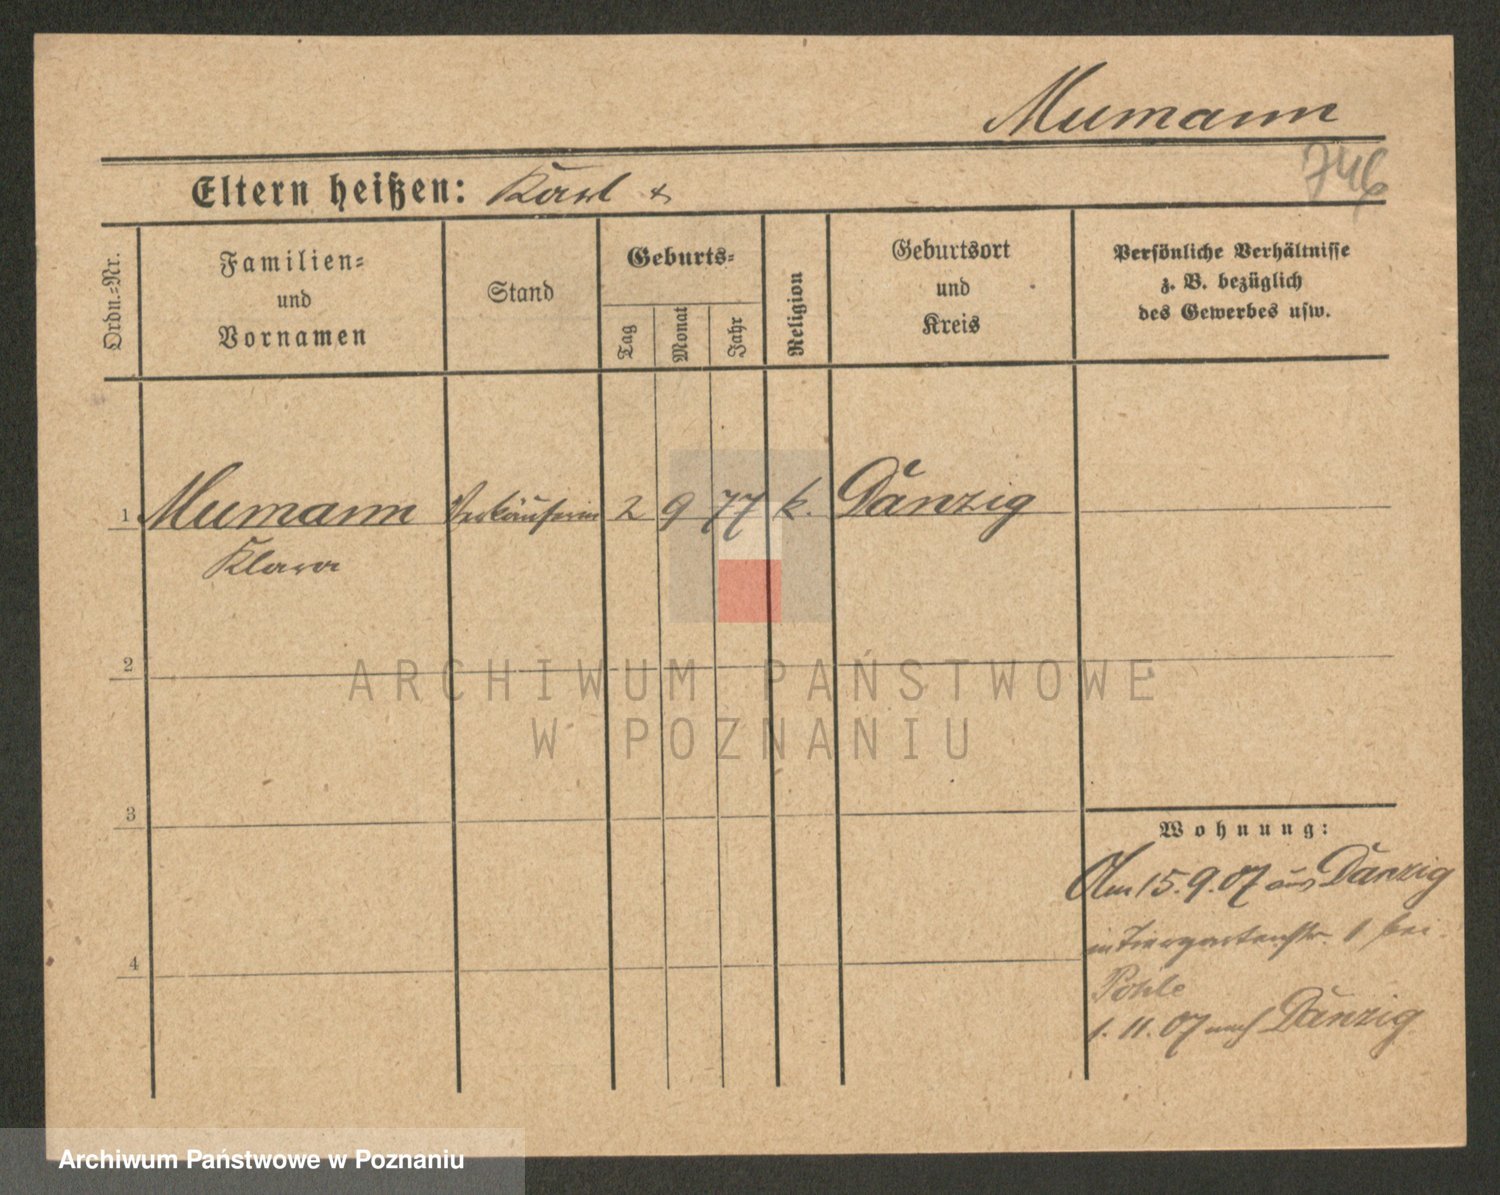 Mumann
746
Eltern heißen: Karl &
Ordn.=Nr.
Familien=
und
Vornamen
Stand
Geburts=
Tag
Monat
Jahr
Religion
Geburtsort
und
Kreis
Persönliche Verhältnisse
z. B. bezüglich
des Gewerbes usw.
1 Mumann Verkäuferin 2 9 77 k. Danzig
Klara
2
ARCHIWUM PAŃSTWOWE
W POZNANIU
3
Wohnung:
Am 15.9.07 aus Danzig
in Tiergartenstr. 1 bei
4
Pohle
1. 11. 07 nach Danzig
Archiwum Państwowe w Poznaniu